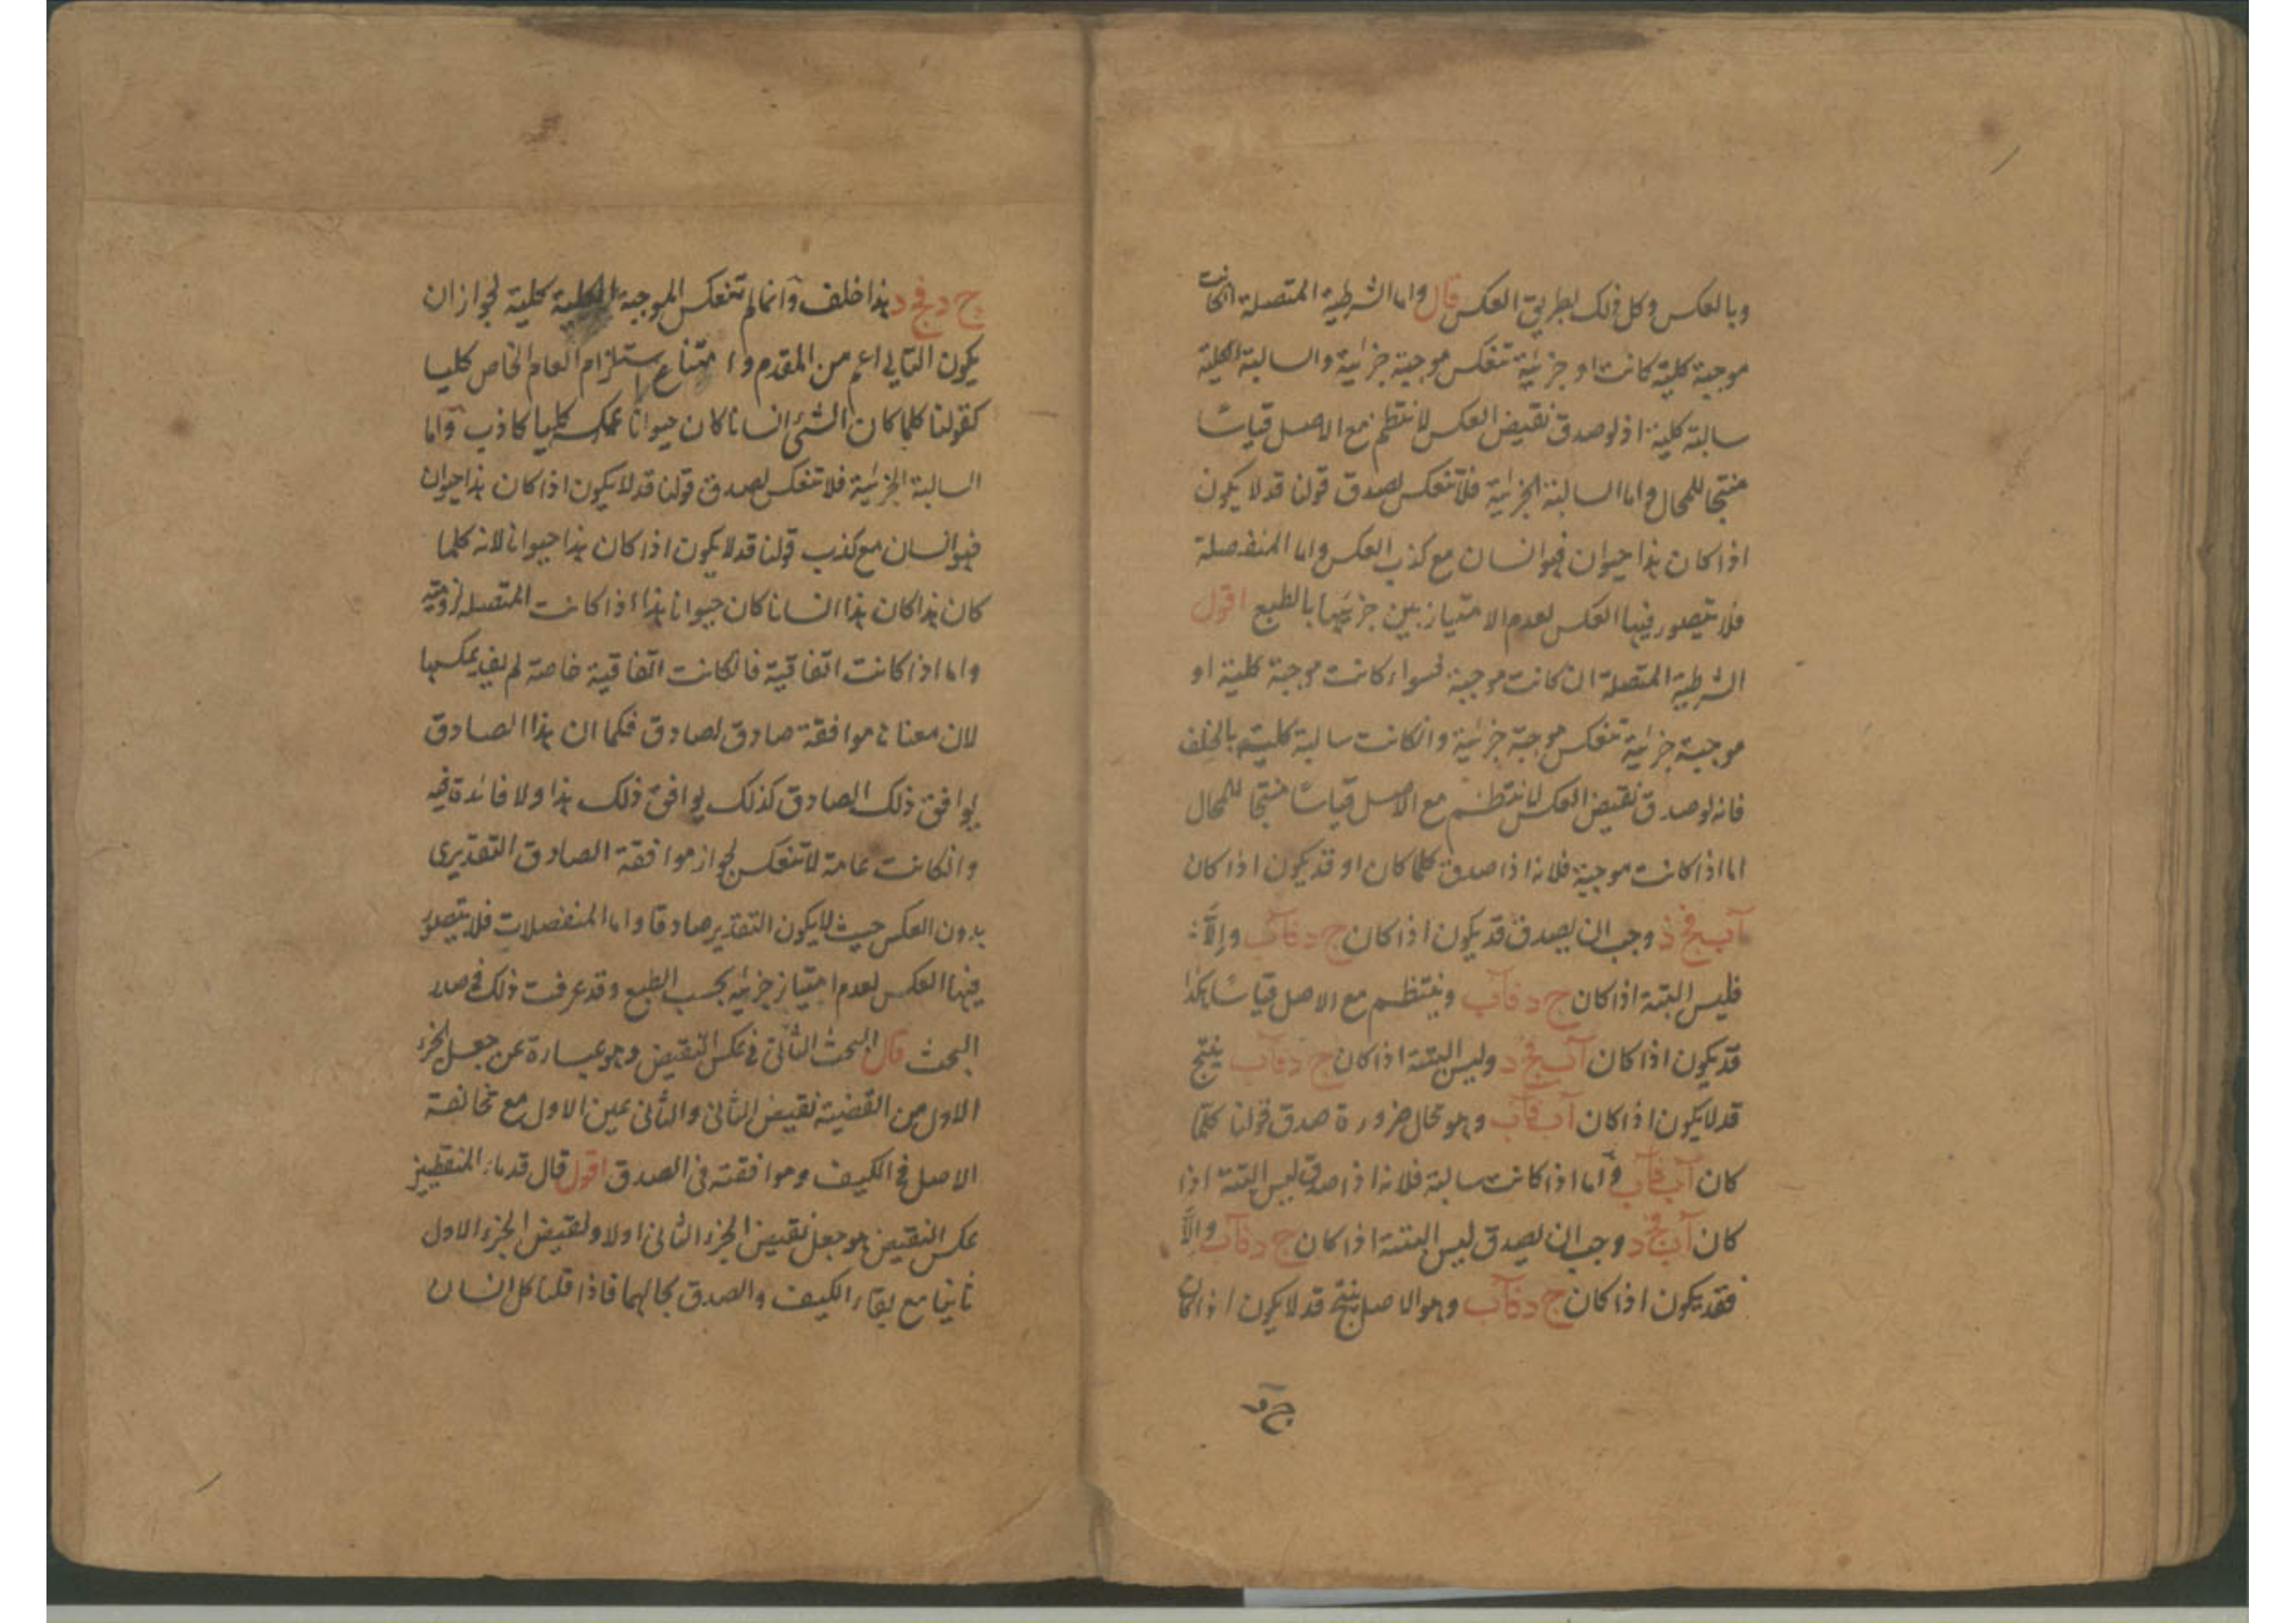 وبالعكس وكل ذلك بطريق العكس قال واما الشرطية المتصلة انكانت
موجبة كلية كانت او جزئية تنعكس موجبة جزئية والسالبة الكلية
سالبة كلية اذ لو صدق نقيض العكس لانتظم مع الاصل قياسا
منتجا للمحال واما السالبة الجزئية فلا تنعكس لصدق قولنا قد لا يكون
اذا كان هذا حيوان فهو انسان مع كذب العكس واما المنفصلة
فلا يتصور فيها العكس لعدم الامتياز بين جزئيها بالطبع اقول
الشرطية المتصلة ان كانت موجبة فسواء كانت موجبة كلية او
موجبة جزئية تنعكس موجبة جزئية وانكانت سالبة كلية بالخلف
فانه لو صدق نقيض العكس لانتظم مع الاصل قياسا منتجا للمحال
اما اذا كانت موجبة فلانه اذا صدق كلما كان او قد يكون اذا كان
آب فج د وجب ان يصدق قد يكون اذا كان ج د فآب وإلّا
فليس البتة اذا كان ج د فآب وينتظم مع الاصل قياسا هكذا
قد يكون اذا كان آب فج د وليس البتة اذا كان ج د فآب ينتج
قد لا يكون اذا كان آب فآب وهو محال ضرورة صدق قولنا كلما
كان آب فآب واما اذا كانت سالبة فلانه اذا صدق ليس البتة اذا
كان آب فج د وجب ان يصدق ليس البتة اذا كان ج د فآب والّا
فقد يكون اذا كان ج د فآب وهو الاصل ينتج قد لا يكون اذا كان
ج د
ج د فج د هذا خلف وانما لم تنعكس الموجبة الكلية كلية لجواز ان
يكون التالي اعم من المقدم وامتناع استلزام العام الخاص كليا
كقولنا كلما كان الشئ انسانا كان حيوانا عكسه كليا كاذب واما
السالبة الجزئية فلا تنعكس لصدق قولنا قد لا يكون اذا كان هذا حيوان
فهو انسان مع كذب قولنا قد لا يكون اذا كان هذا حيوانا لانه كلما
كان هذا كان هذا انسانا كان حيوانا هذا اذا كانت المتصلة لزومية
واما اذا كانت اتفاقية فانكانت اتفاقية خاصة لم يفد عكسها
لان معناها موافقة صادق لصادق فكما ان هذا الصادق
يوافق ذلك الصادق كذلك يوافق ذلك هذا ولا فائدة فيه
وانكانت عامة لا تنعكس لجواز موافقة الصادق التقديرى
بدون العكس حيث لا يكون التقدير صادقا واما المنفصلات فلا يتصور
فيها العكس لعدم امتياز جزئيه بحسب الطبع وقد عرفت ذلك في صدر
البحث قال البحث الثاني في عكس النقيض وهو عبارة عن جعل الجزء
الاول من القضية نقيض الثاني والثاني عين الاول مع مخالفة
الاصل في الكيف وموافقته في الصدق اقول قال قدماء المنطقيين
عكس النقيض هو جعل نقيض الجزء الثاني اولا ونقيض الجزء الاول
ثانيا مع بقاء الكيف والصدق بحالهما فاذا قلنا كل انسان